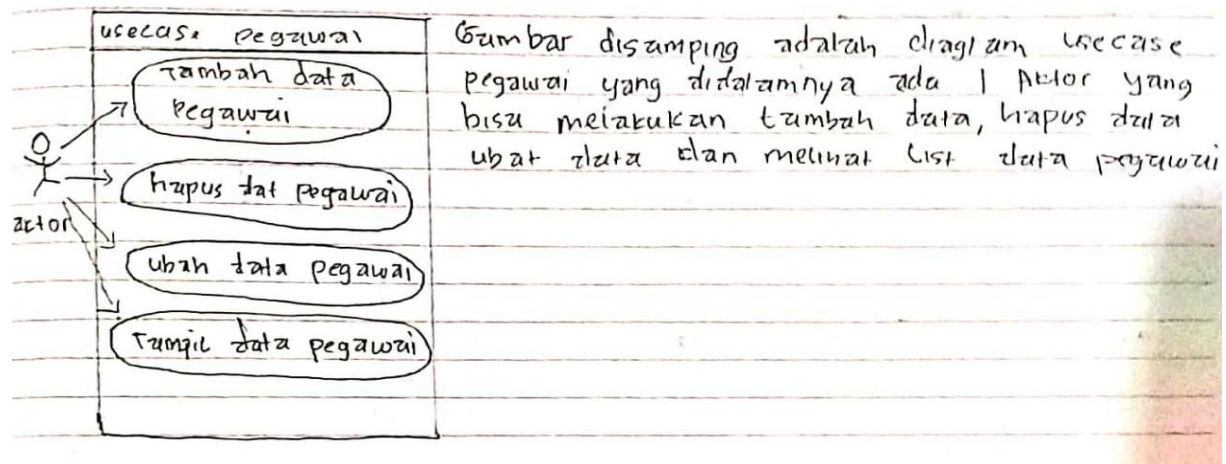 usecase pegawai
Tambah data
pegawai
hapus dat pegawai
actor
ubah data pegawai
Tampil data pegawai
Gambar disamping adalah diagram usecase
pegawai yang didalamnya ada 1 Aktor yang
bisa melakukan tambah data, hapus data
ubah data dan melihat list data pegawai